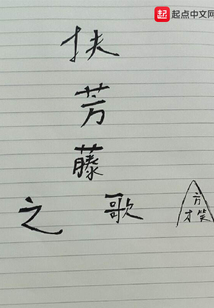 起点中文网
扶
芳
藤
之 歌
方
才笑